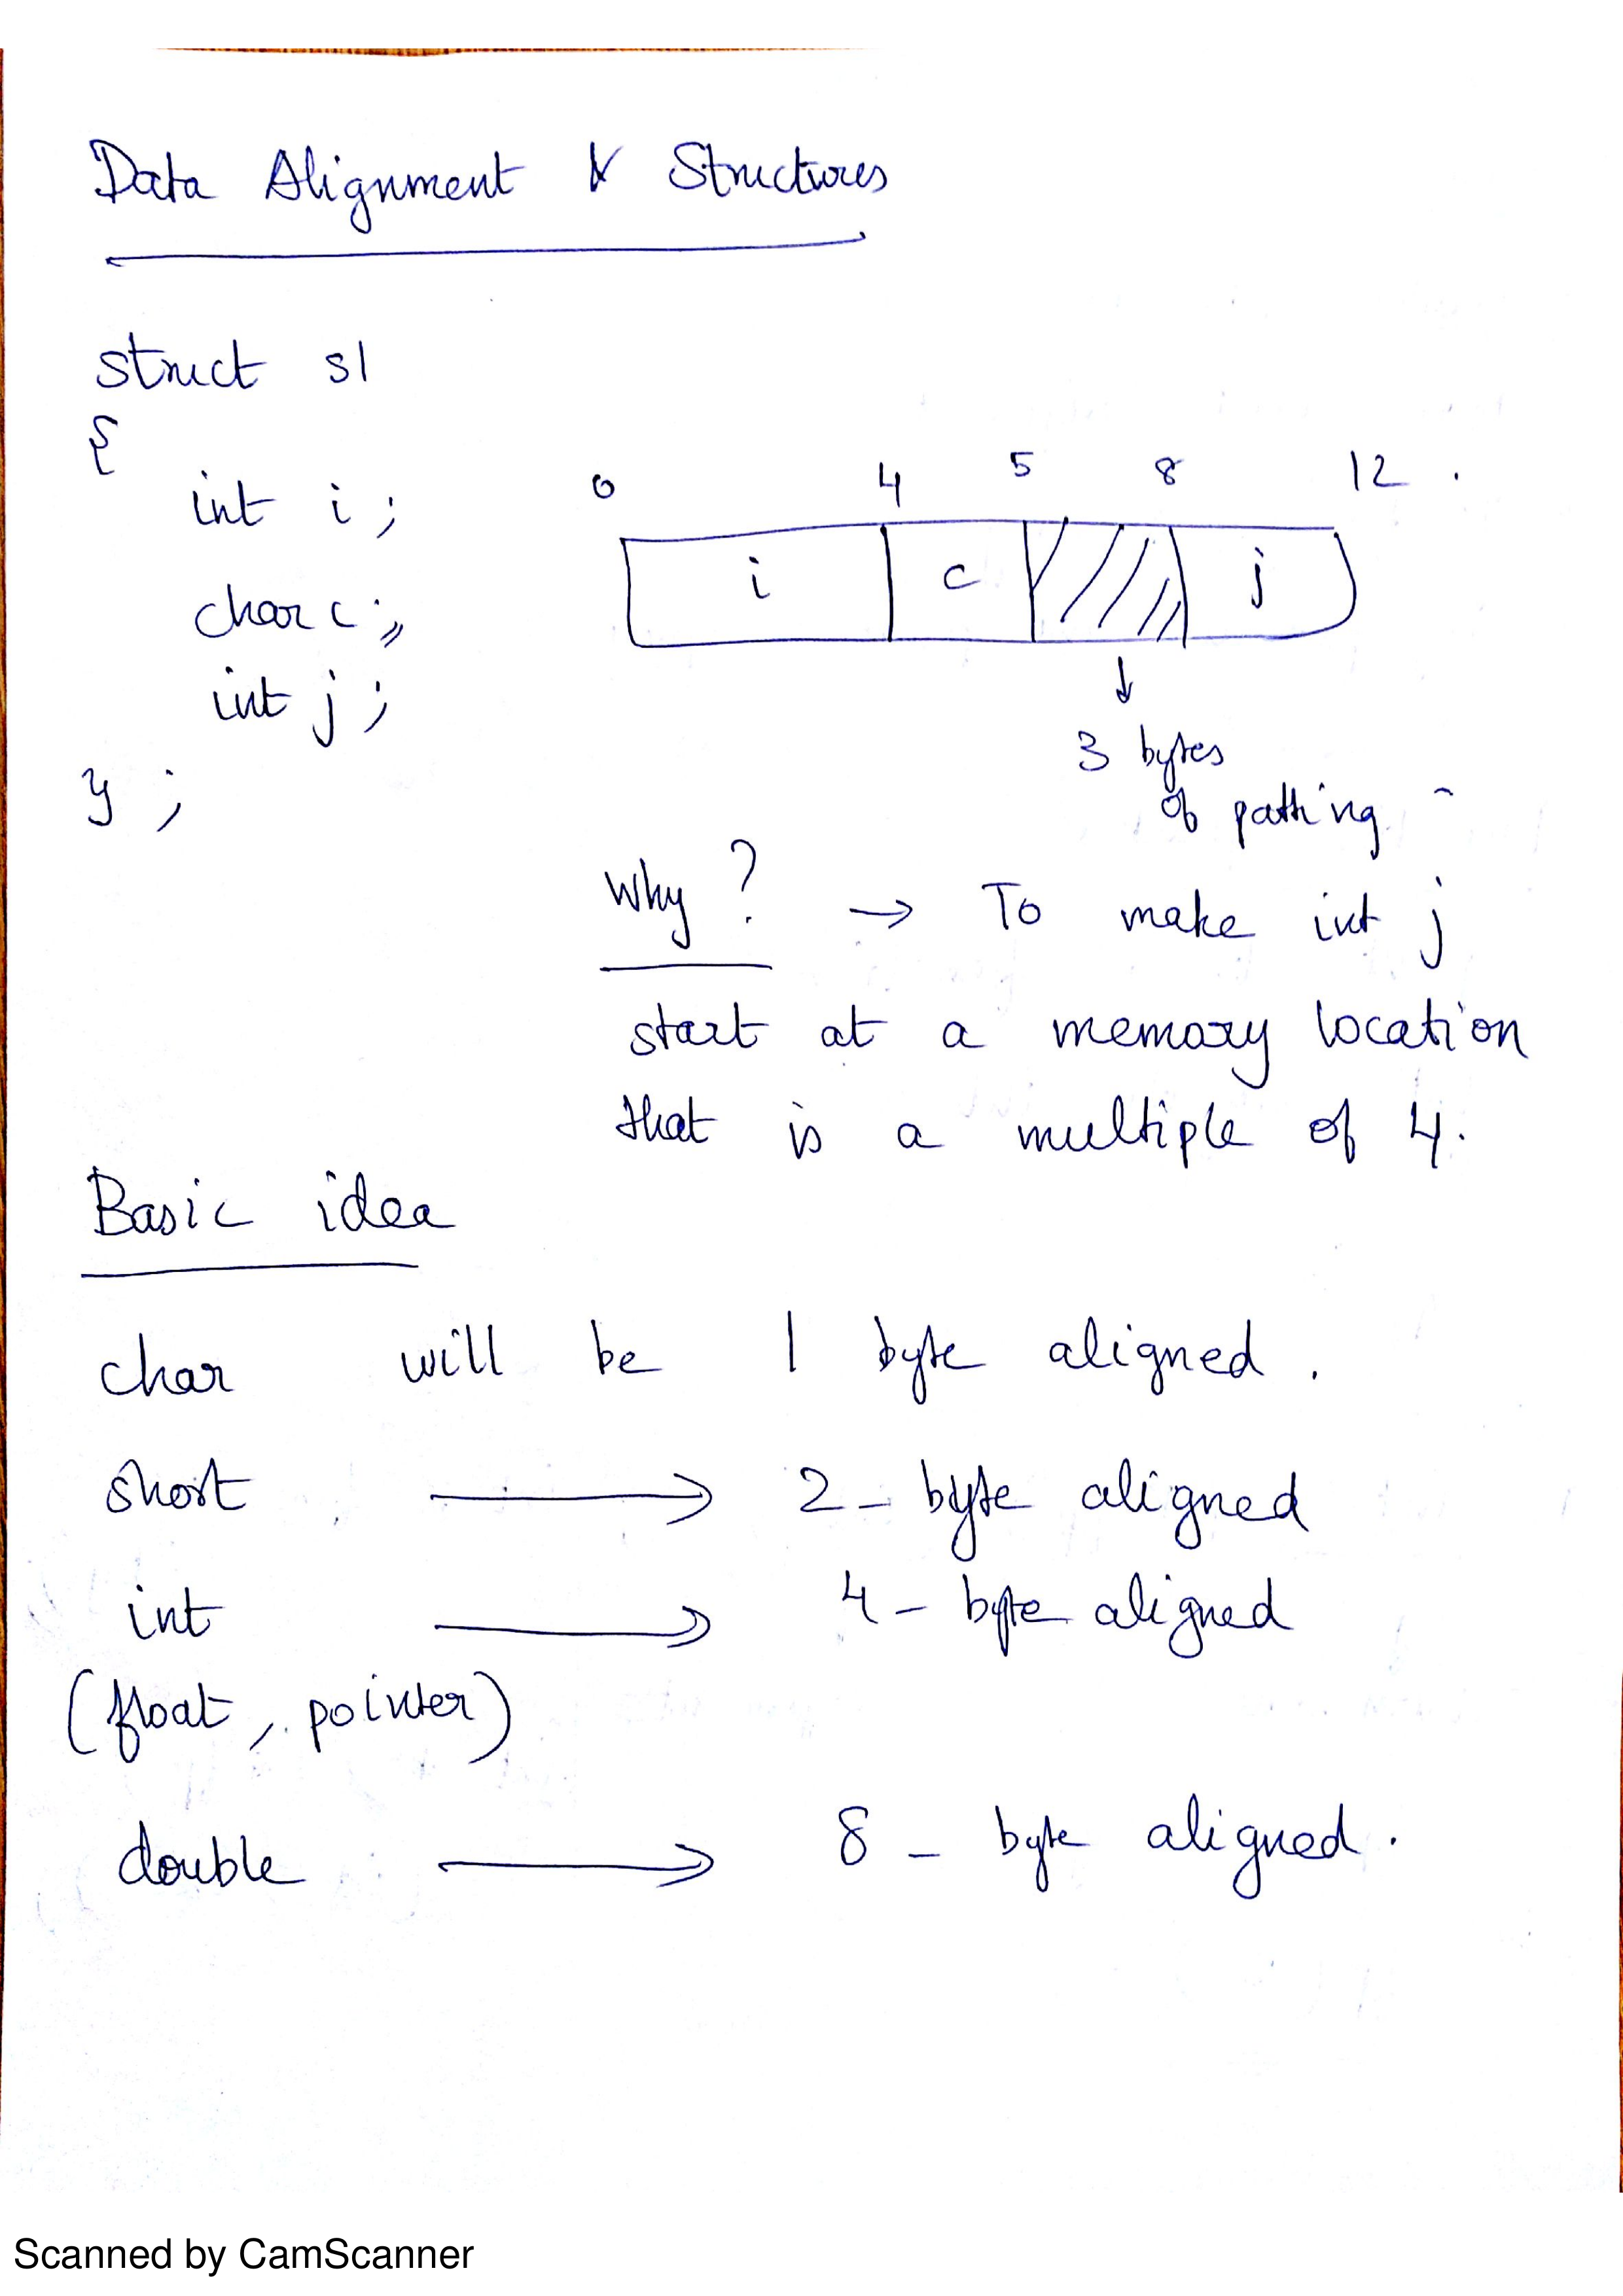 Data Alignment & Structures
struct s1
{
int i;
char c;
int j;
};
0 4 5 8 12.
i c j
3 bytes
of pathing
Why? → To make int j
start at a memory location
that is a multiple of 4.
Basic idea
char will be 1 byte aligned.
short → 2-byte aligned
int → 4-byte aligned
(float, pointer)
double → 8-byte aligned.
Scanned by CamScanner